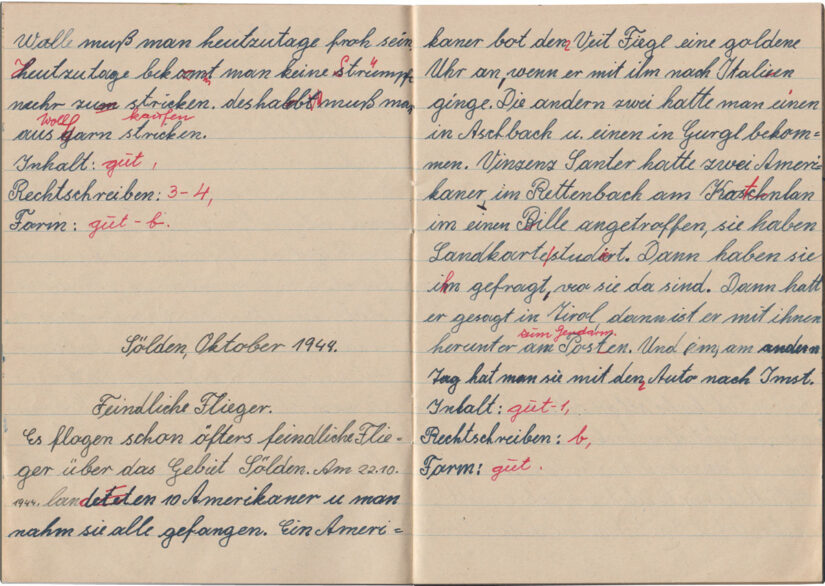 Wolle muß man heutzutage froh sein
Heutzutage bekomt man keine Strümpfe
mehr zum stricken. deshalb muß man
Wolle kaufen
aus Garn stricken.
Inhalt: gut,
Rechtschreiben: 3-4,
Form: gut-b.
Sölden, Oktober 1944.
Feindliche Flieger.
Es flogen schon öfters feindliche Flie-
ger über das Gebiet Sölden. Am 22.10.
1944. landeten 10 Amerikaner u man
nahm sie alle gefangen. Ein Ameri-
kaner bot den Veit Fiegl eine goldene
Uhr an, wenn er mit ihm nach Italien
ginge. Die andern zwei hatte man einen
in Aschbach u. einen in Gurgl bekom-
men. Vinzenz Santer hatte zwei Ameri-
kaner, im Rettenbach am
in einen Bille angetroffen, sie haben
Landkarte studiert. Dann haben sie
ihn gefragt, wo sie da sind. Dann hatt
er gesagt in Tirol, dann ist er mit ihnen
zum Gendarm.
herunter am Posten. Und am andern
Tag hat man sie mit den Auto nach Imst.
Inhalt: gut-1,
Rechtschreiben: b,
Form: gut.